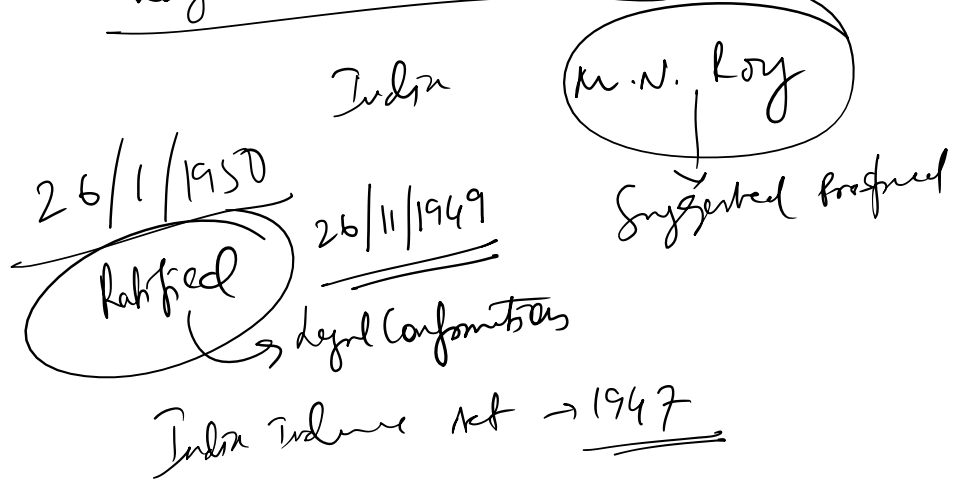 India
M.N. Roy
26/1/1950
26/11/1949
Suggested
Ratified
Legal Confirmation
India Act → 1947